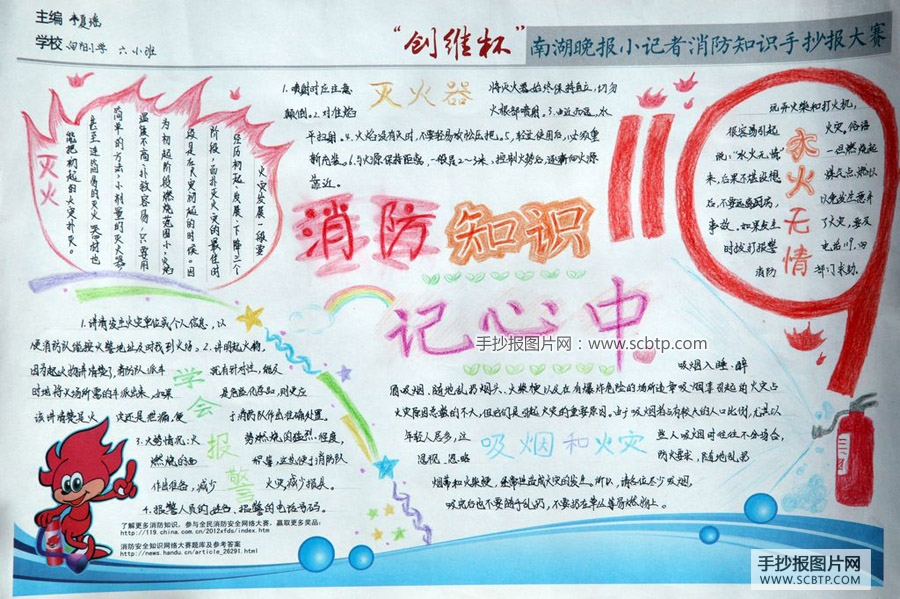 主编
学校 向阳小学 六 小班
“创维杯”南湖晚报小记者消防知识手抄报大赛
灭火器
1.喷射时应注意
将灭火器始终保持直立,切勿
颠倒。2.对准焰
火根部喷射。3.由近而远,水
平扫射。4.火焰没有灭时,不要轻易放松压把。5.经过使用后,必须重
新充装。6.与火源保持距离,一般是2~3米,控制火势后,逐渐向火源
靠近。
灭火
火灾发展一般要
经历初起、发展、下降三个
阶段,而扑灭火灾的最佳时
段是在火灾初起的时候。因
为初起阶段燃烧范围小,火焰
温度不高,扑救容易,只要用
简单的方法,小剂量的灭火器
甚至连简易的灭火器材也
能把初起的火灾扑灭。
水火无情
玩弄火柴和打火机,
很容易引起
火灾。俗语
说:“水火无情”
一旦燃烧起
来,后果不堪设想
后,不要远离厨房,
以免发生意外
事故。如果发生
了火灾,要及
时拨打报警
电话119,向
消防
部门求助。
消防知识
记心中
手抄报图片网:www.scbtp.com
学会报警
1.讲清发生火灾单位或个人信息,以
便消防队能按火警地址及时找到火场。2.讲明起火物,
因为起火物讲清楚了,消防队派车
既有针对性,能及
时地将火场所需的车派出来,如果
是危险化学品,则更应
该讲清楚是火
这还是泄漏,便
于消防队作出准确处置。
3.火势情况:火
势燃烧的猛烈程度,
燃烧的面
积等,这也便于消防队
作出准备,减少
火灾减少损失。
4.报警人员的姓名、报警的电话号码。
吸烟和火灾
吸烟入睡、醉
酒吸烟、随地乱扔烟头、火柴梗以及在有爆炸危险的场所违章吸烟等引起的火灾占
火灾原因总数的不大,但他们是引起火灾的重要原因。由于吸烟者占有较大的人口比例,尤其以
年轻人居多,这
些人吸烟时往往不分场合,
忽视、忽略
防火要求,随地乱扔
烟蒂和火柴梗,经常造成火灾的发生。所以,请各位尽少吸烟,
吸完后也不要随手乱扔,不要扔在草丛等易燃物上。
了解更多消防知识,参与全民消防安全网络大赛,赢取更多奖品:
http://119.china.com.cn/2012xfds/index.htm
消防安全知识网络大赛题库及参考答案
http://news.handu.cn/article_26291.html
手抄报图片网
WWW.SCBTP.COM